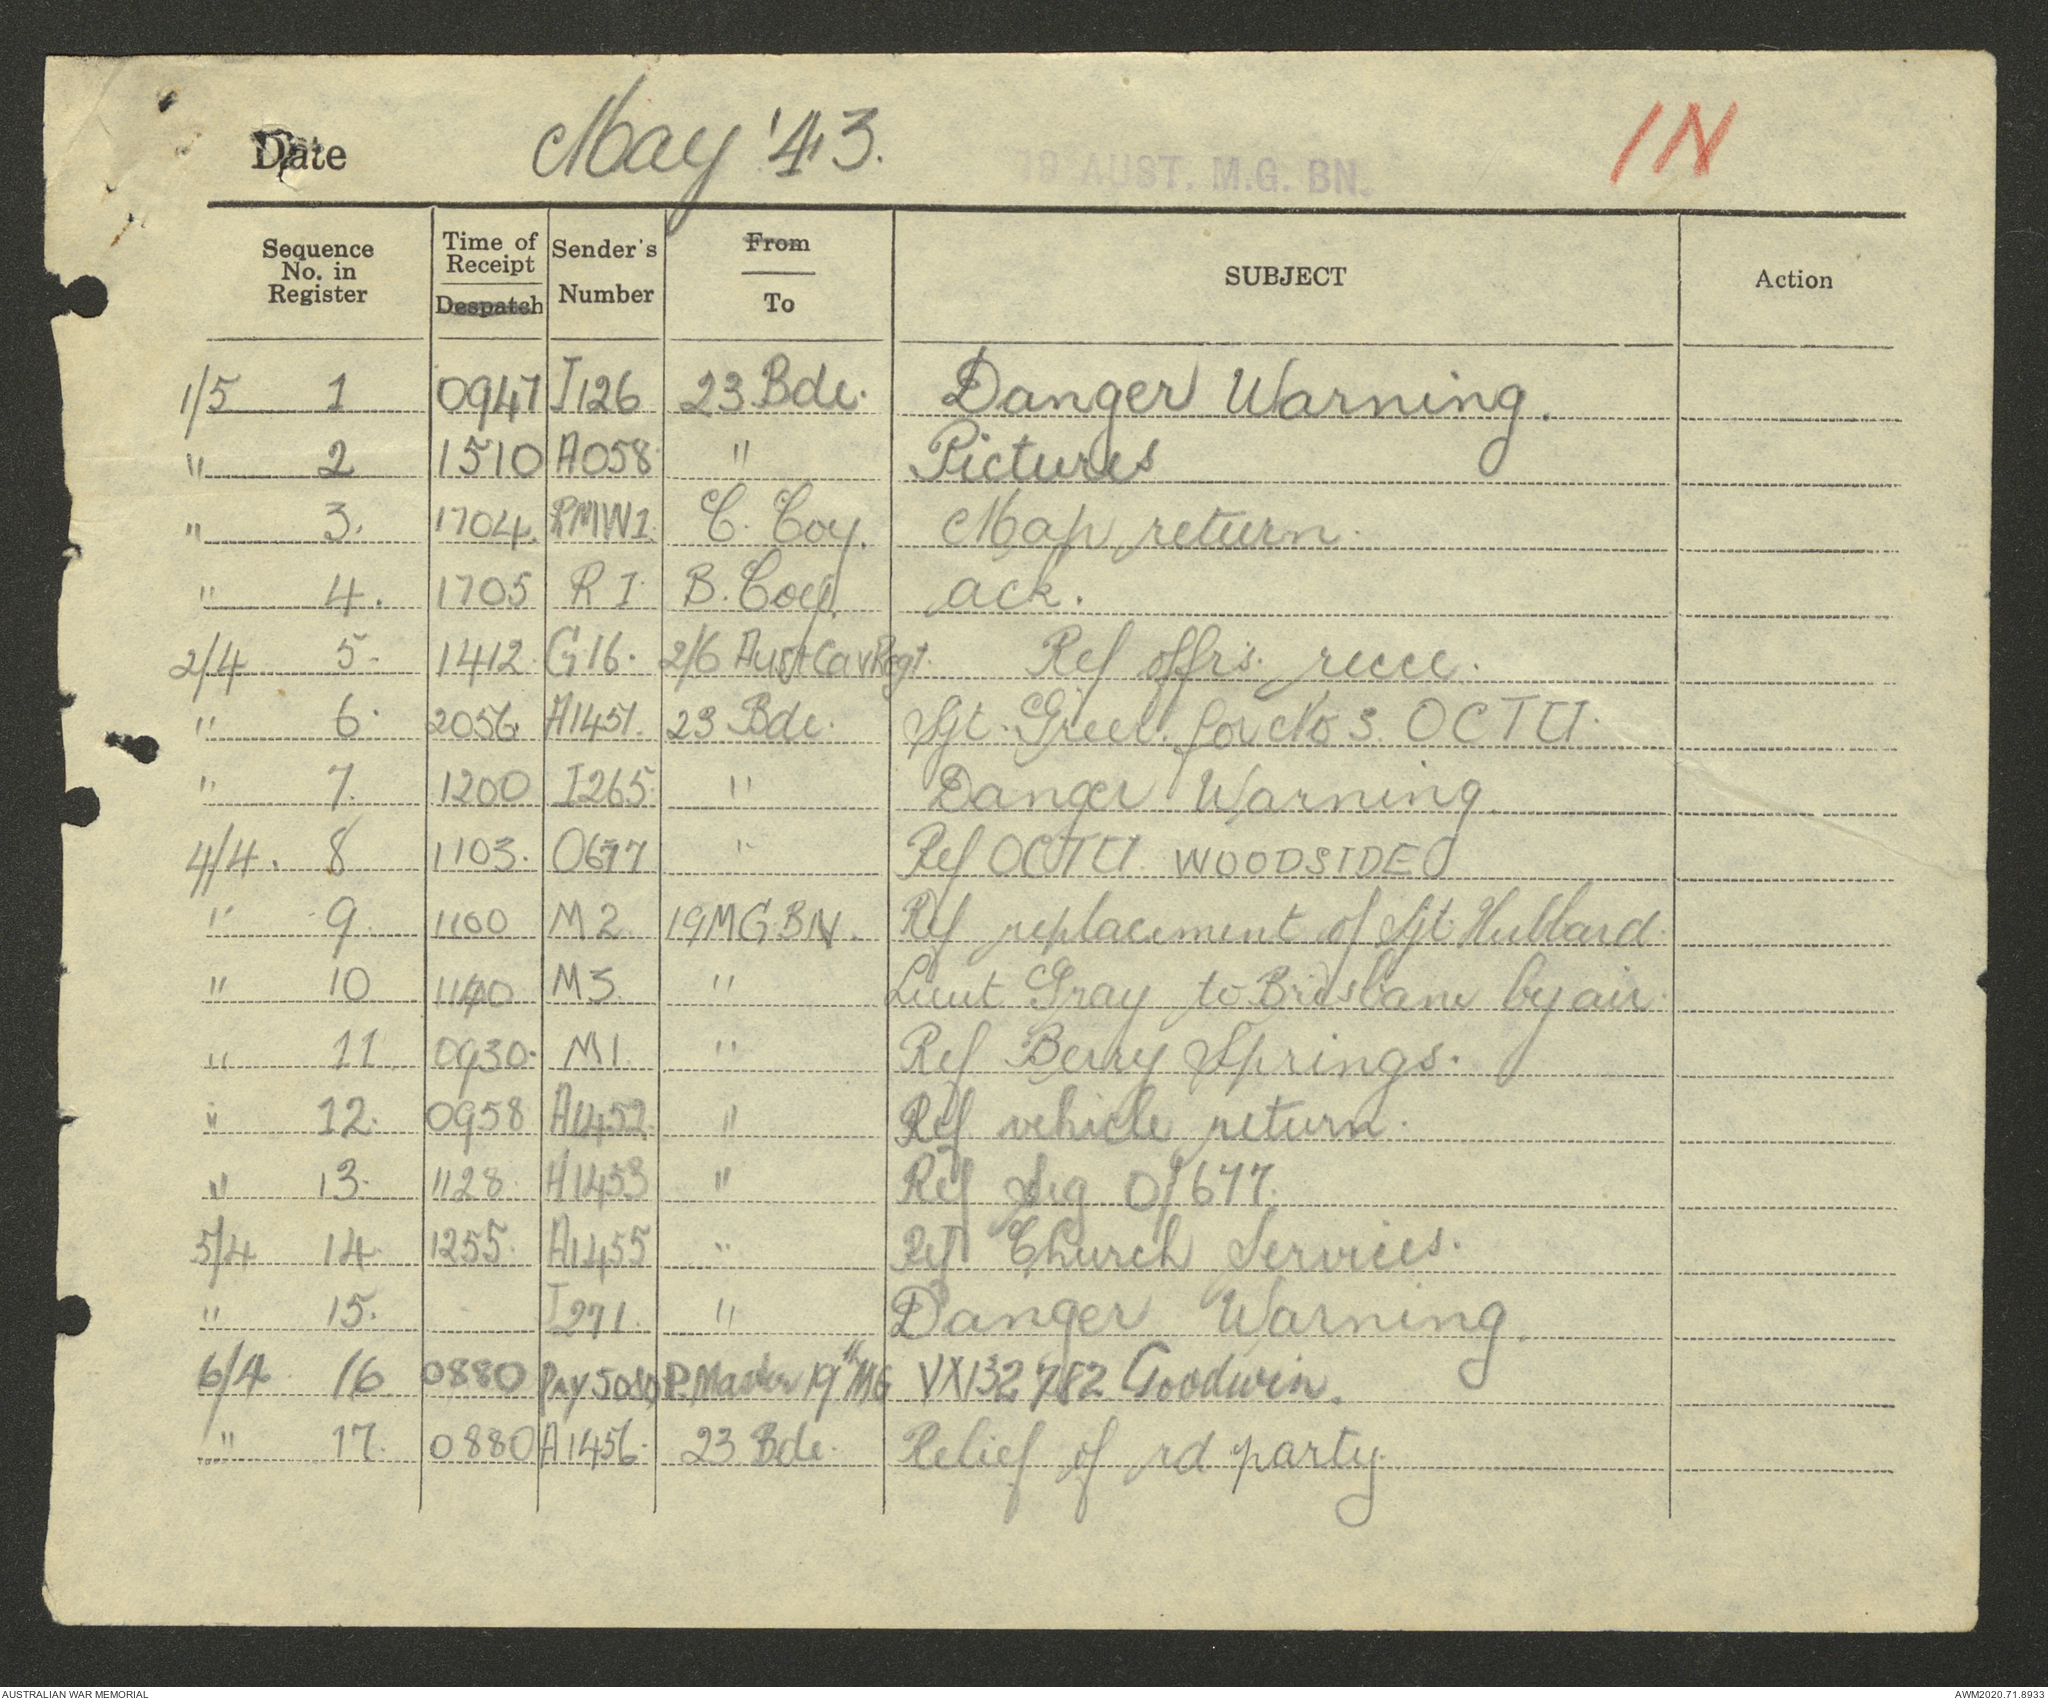 Date May '43. 19 AUST. M.G. BN. IN
Sequence No. in Register Time of Receipt Despatch Sender's Number From To SUBJECT Action
1/5 1 0947 I126 23 Bde. Danger Warning.
" 2 1510 A058 " Pictures
" 3. 1704. RMW1. C. Coy. Map return.
" 4. 1705 R I B. Coy. ack.
2/4 5. 1412. G16. 2/6 Aust Cav Regt. Ref offrs. recce.
" 6. 2056. A1451. 23 Bde. Sgt. for No 3. OCTU.
" 7. 1200 I265 " Danger Warning.
4/4. 8 1103. O677 " Ref OCTU WOODSIDE
" 9. 1100 M2. 19 MG. BN. Ref replacement of Sgt. Hubbard.
" 10 1140 M3. " Lieut Gray to Brisbane by air.
" 11 0930. M1. " Ref Berry Springs.
" 12. 0958 A1452. " Ref vehicle return.
" 13. 1128 A1453 " Ref sig O/677.
5/4 14. 1255. A1455 " Ref Church Services.
" 15. I271. " Danger Warning.
6/4 16 0880 Pay P. Master 19th MG VX132782 Goodwin.
" 17. 0880 A1456. 23 Bde. Relief of rd party.
AUSTRALIAN WAR MEMORIAL AWM2020.71.8933